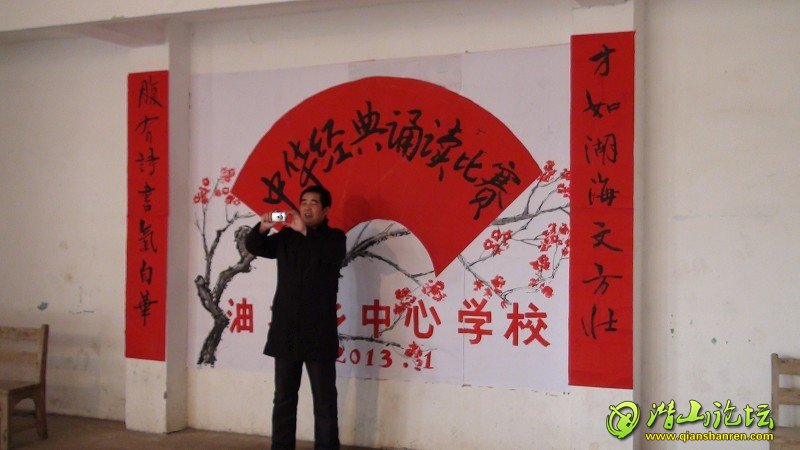 才如湖海文方壮
腹有詩書氣自華
中华经典诵读比赛
油 乡中心学校
2013.1
潜山论坛
www.qianshanren.com